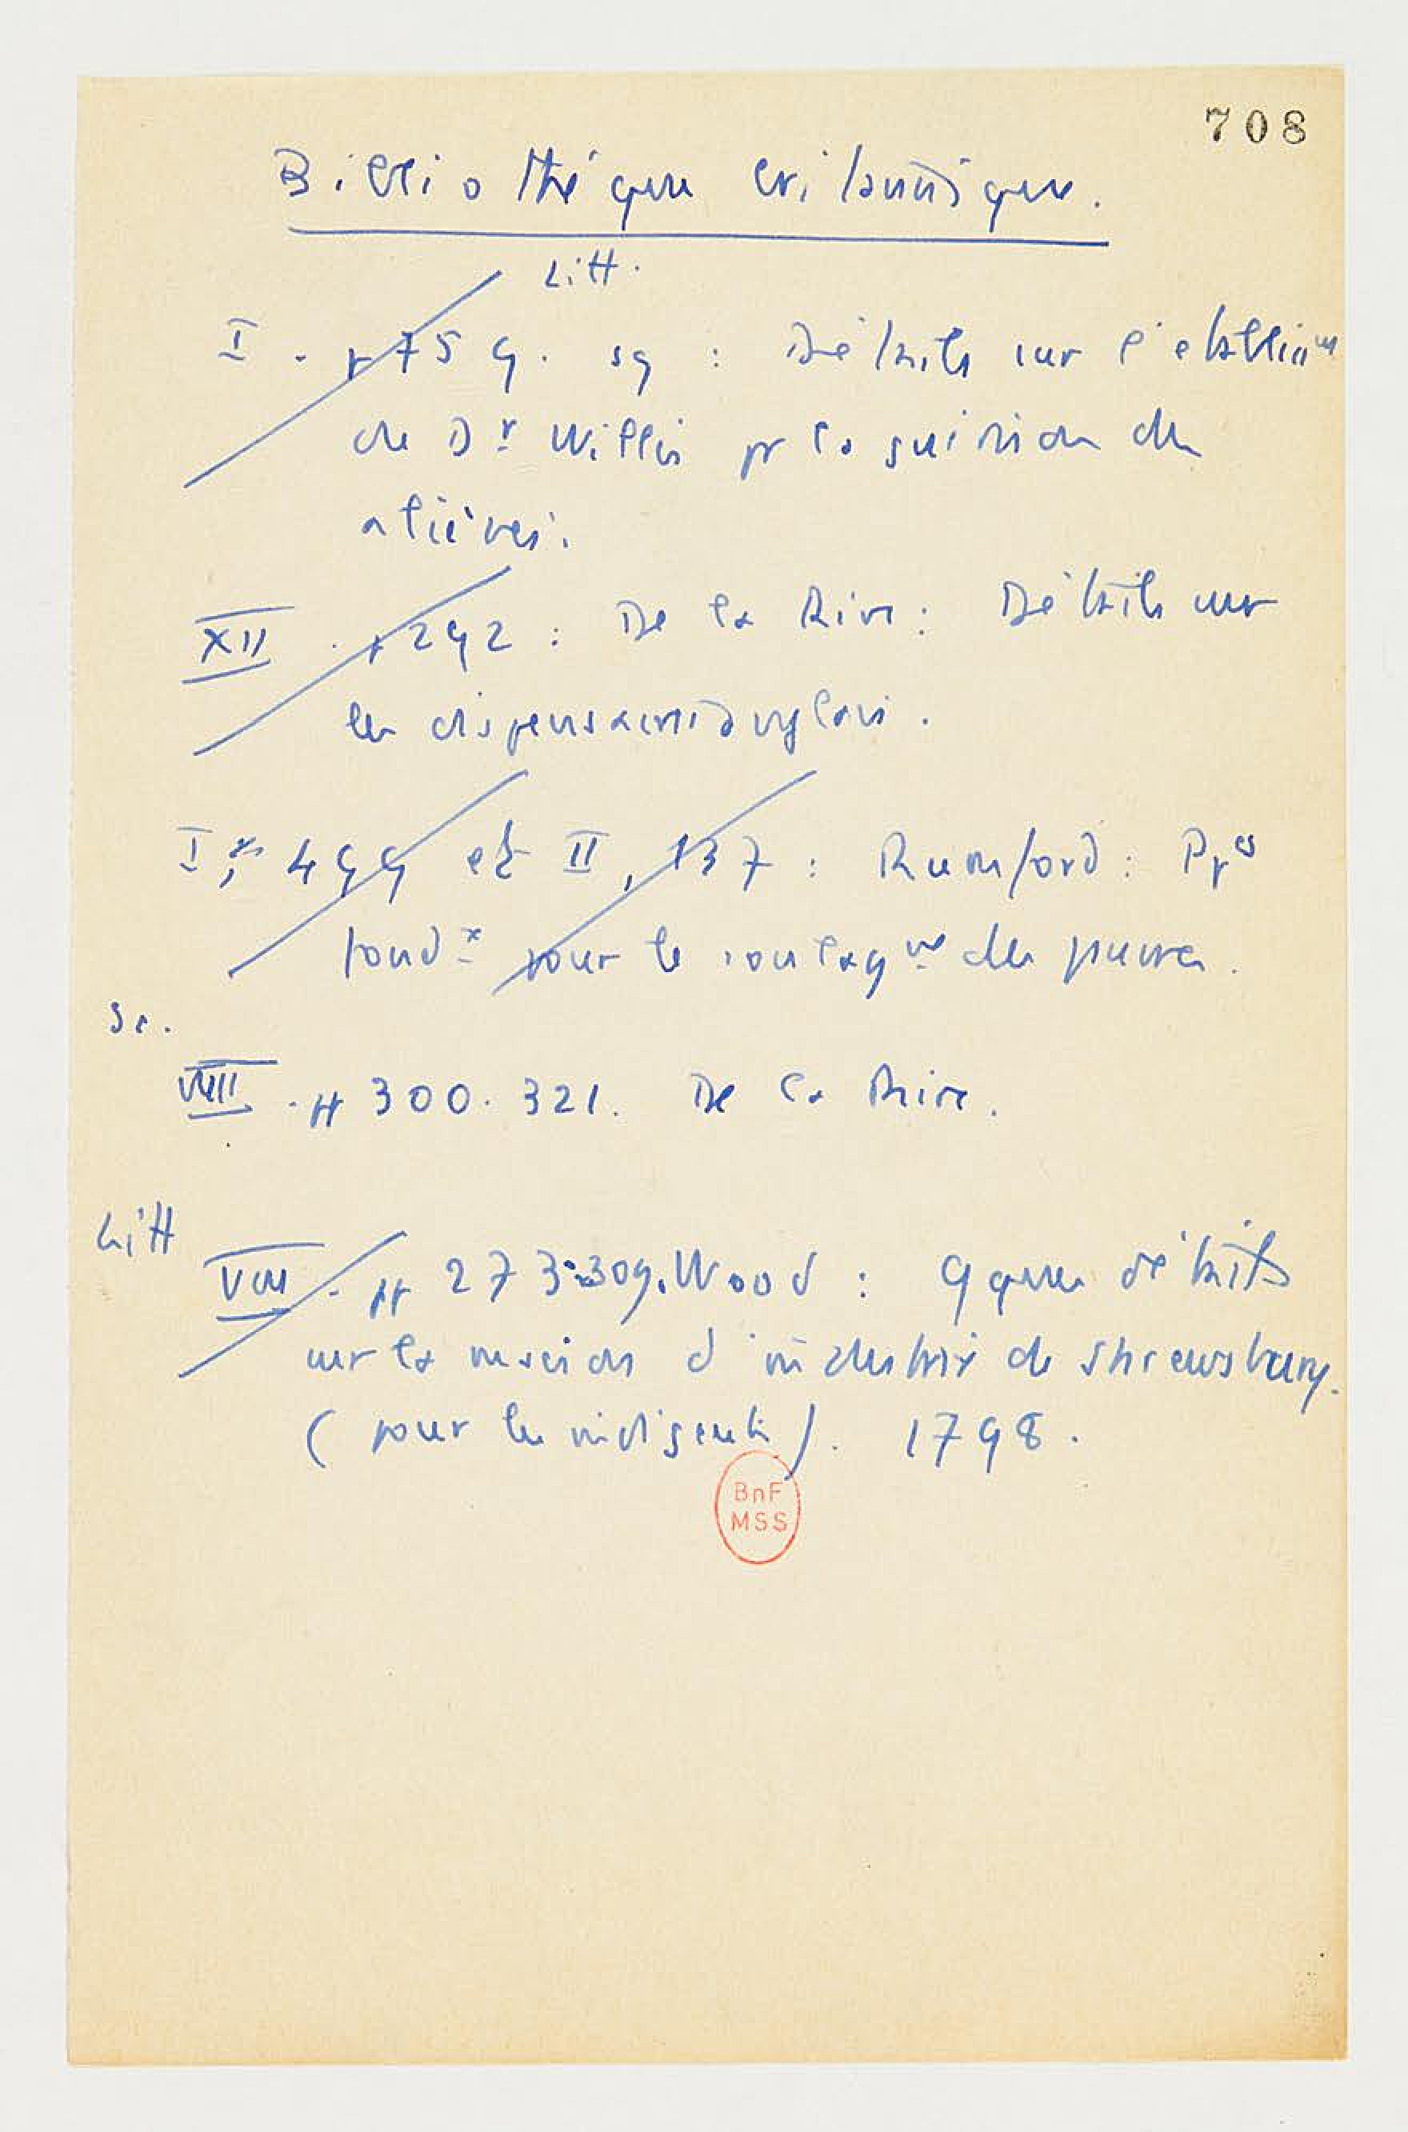 708
Bibliothèque britannique.
Litt.
I. p 759. sq : Détails sur l'etablissmt
de Dr Willis pr la guérison des
aliénés.
XII. p 292 : De la Rive : Détails sur
les dispensaires anglais.
I, 499 et II, 137 : Rumford : Ppes
fondx pour le soulagmt des pauvres.
Sc.
VIII. pp 300. 321. De la Rive.
Litt
VIII. pp 273-309. Wood : Qques détails
sur la maison d'industrie de Shrewsbury.
(pour les indigents). 1798.
BnF
MSS